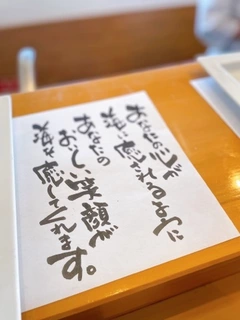 あなたの心が
海に癒されるように
あなたの
おいしい笑顔が
海を癒してくれます。